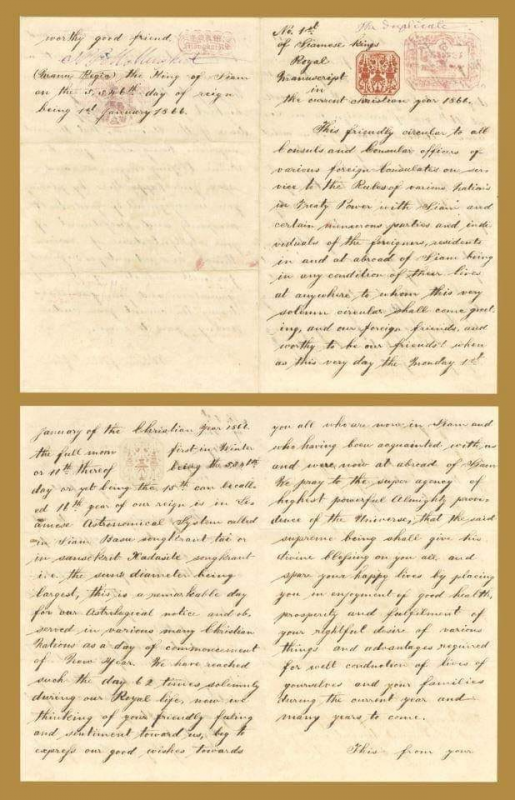 The Duplicate
No. 1st
of Siamese Kings
Royal
manuscript
in
the current christian year 1866.
This friendly circular to all
Consuls and Consular officers of
various foreign Consulates on ser-
vice to the Rules of various Nations
in Treaty Power with Siam and
certain numerous parties and indi-
viduals of the foreigners, residents
in and at abroad of Siam being
in any condition of their lives
at anywhere to whom this very
solemn circular shall come greet-
ing, and our foreign friends, and
worthy to be our friends! when
as this very day the Monday 1st
January of the Christian Year 1866
the full moon first in Winter
or 11th thereof being the
day or yet being the 15th can be call-
ed 16th year of our reign is in Si-
amese Astronomical System called
in Siam songkrant
in sanskrit songkrant
i.e. the suns diameter being
largest, this is a remarkable day
for our Astrological notice and ob-
served in various many Christian
Nations as a day of commencement
of New Year. We have reached
such the day 62 times solemnly
during our Royal life, now in
thinking of your friendly feeling
and sentiment toward us, beg to
express our good wishes towards
you all who are now in Siam and
who having been acquainted with us
and were, now at abroad of Siam
We pray to the super agency of
highest powerful Almighty provi-
dence of the Universe, that the said
supreme being shall give his
divine blessing on you all, and
spare your happy lives by placing
you in enjoyment of good health,
prosperity and fulfilment of
your rightful desire of various
things and advantages required
for well conduction of lives of
yourselves and your families
during the current year and
many years to come.
This from your
worthy good friend
(Manu Regia) the King of Siam
on the day of reign
being 1st January 1866.